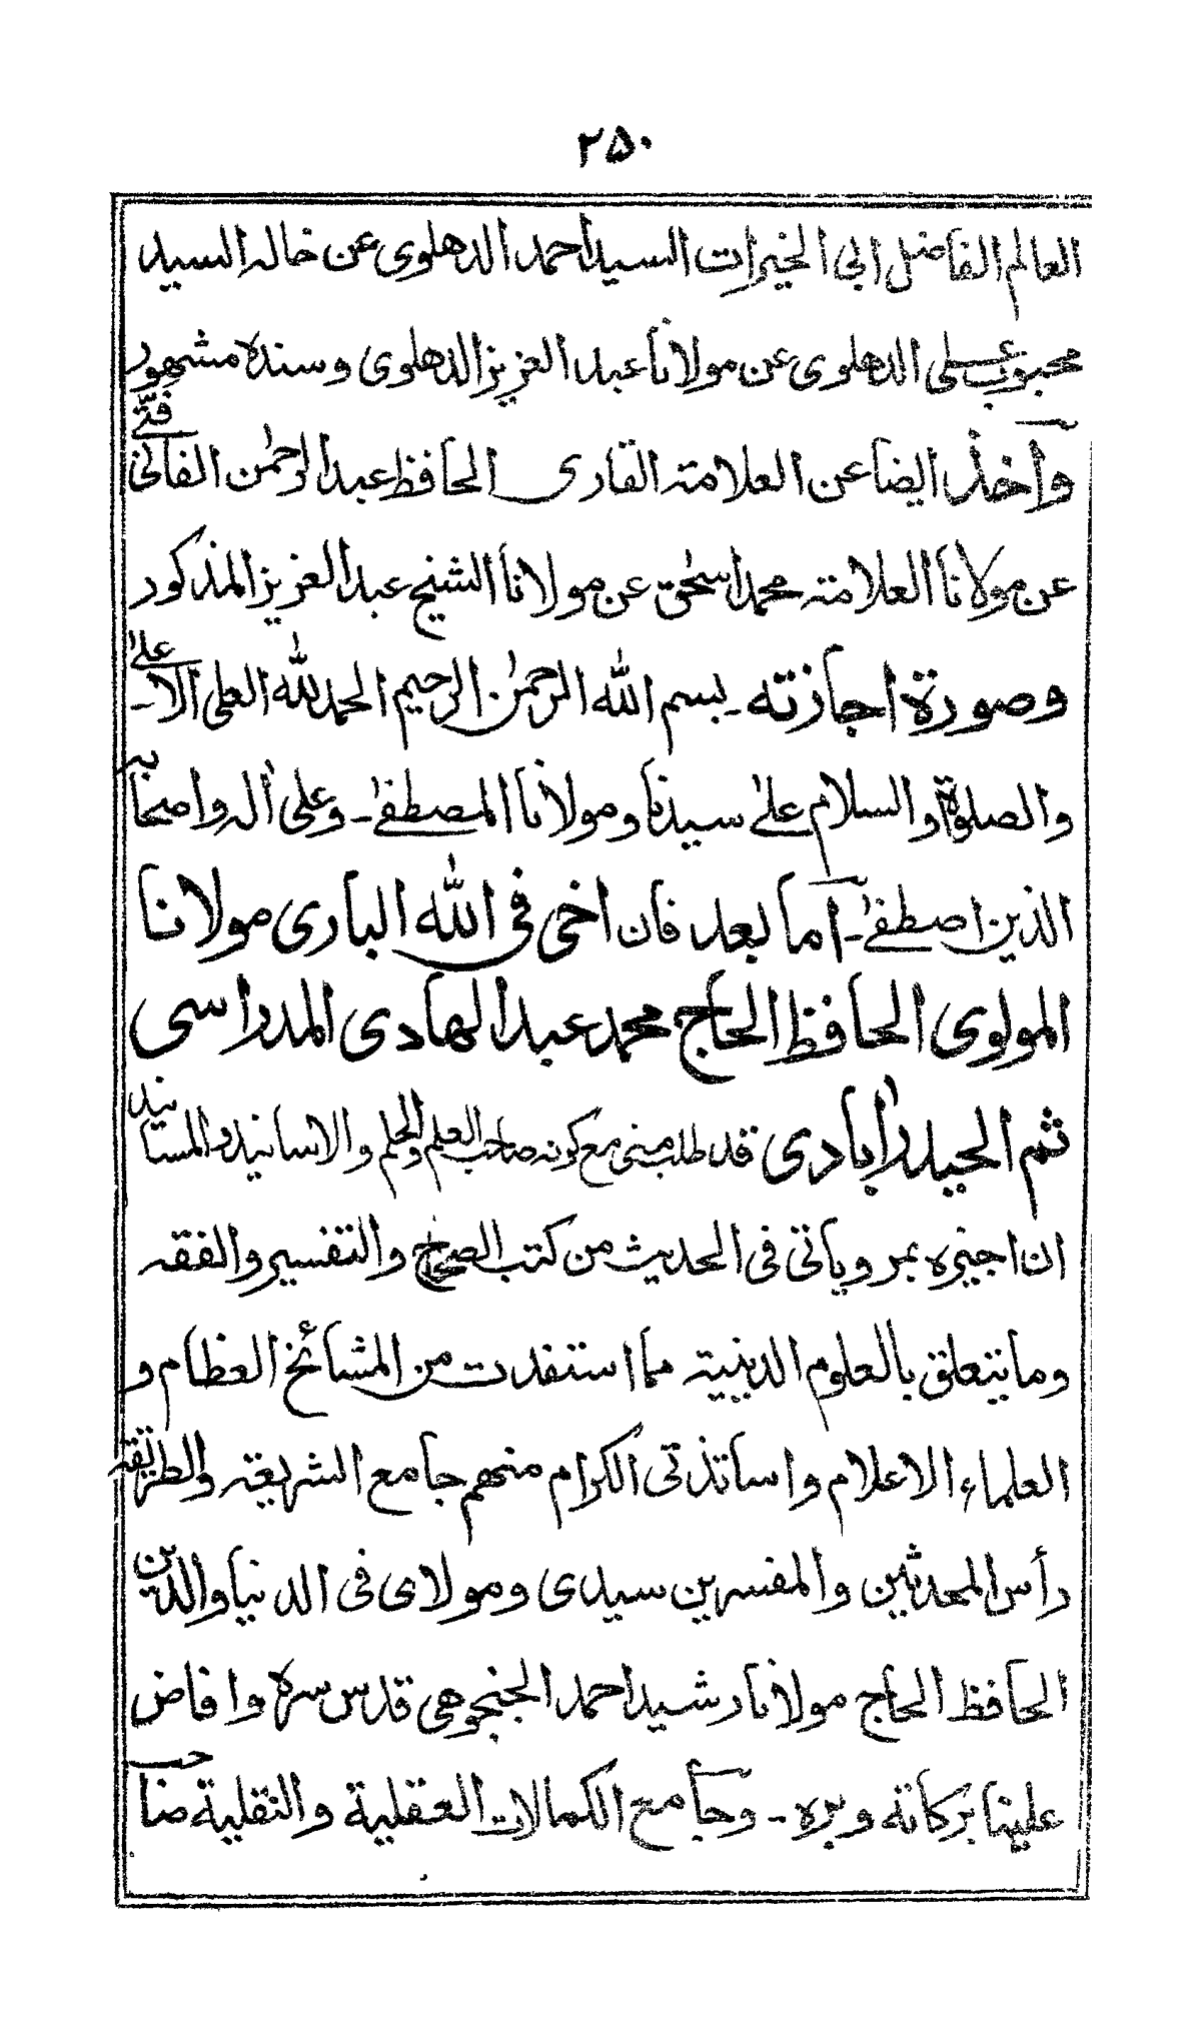 ۲۵۰
العالم الفاضل ابى الخيرات السيد احمد الدهلوى عن خاله السيد
محبوب على الدهلوى عن مولانا عبد العزيز الدهلوى وسنده مشهور
وأخذ ايضا عن العلامة القارى الحافظ عبد الرحمٰن الفانى فتى
عن مولانا العلامة محمد اسحٰق عن مولانا الشيخ عبد العزيز المذكور
وصورة اجازته ـ بسم الله الرحمٰن الرحيم الحمد لله العلى الاعلىٰ ـ
والصلوٰة والسلام علىٰ سيدنا ومولانا المصطفىٰ ـ وعلى اٰله واصحابه
الذين اصطفىٰ ـ اما بعد فان اخى فى الله البارى مولانا
المولوى الحافظ الحاج محمد عبد الهادى المدراسى
ثم الحيدراٰبادى قد طلب منى مع كونه صاحب العلم والحلم والاسانيد والمسانيد
ان اجيزه بمروياتى فى الحديث من كتب الصحاح والتفسير والفقه
وما يتعلق بالعلوم الدينية مما استفدت من المشائخ العظام و
العلماء الاعلام واساتذتى الكرام منهم جامع الشريعة والطريقة
رأس المحدثين والمفسرين سيدى ومولاى فى الدنيا والدين
الحافظ الحاج مولانا رشيد احمد الجنجوهى قدس سره وافاض
علينا بركاته وبره ـ وجامع الكمالات العقلية والنقلية صاحب